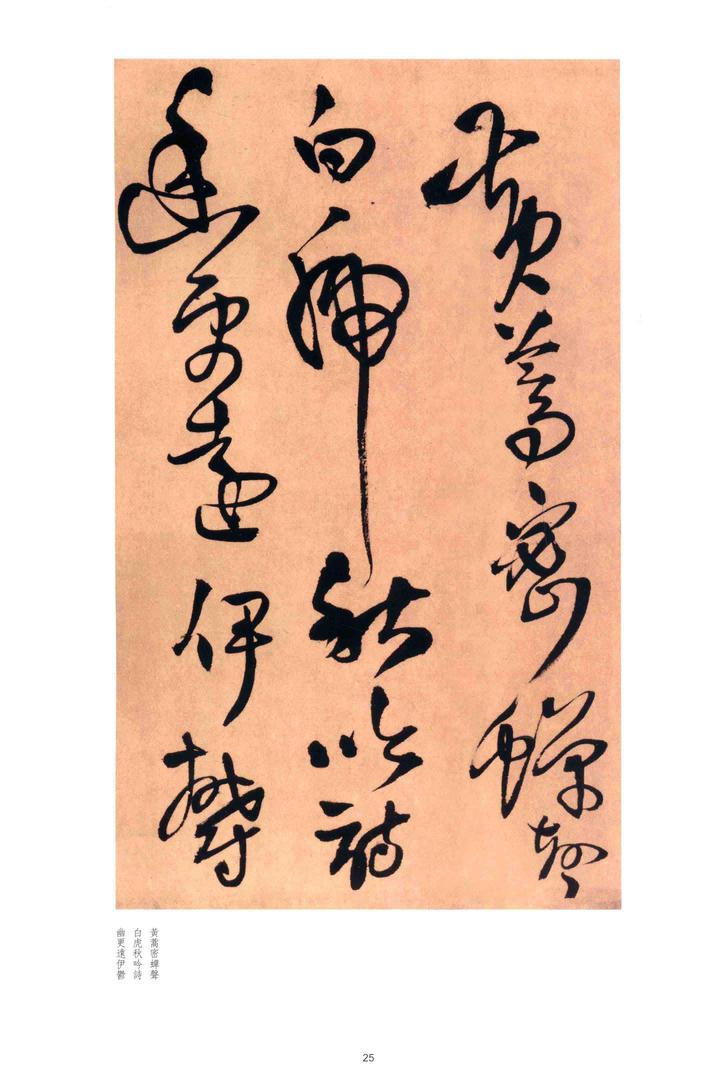 黃蒿密蟬聲
白虎秋吟詩
幽更遠伊鬱
黃蒿密蟬聲
白虎秋吟詩
幽更遠伊鬱
25